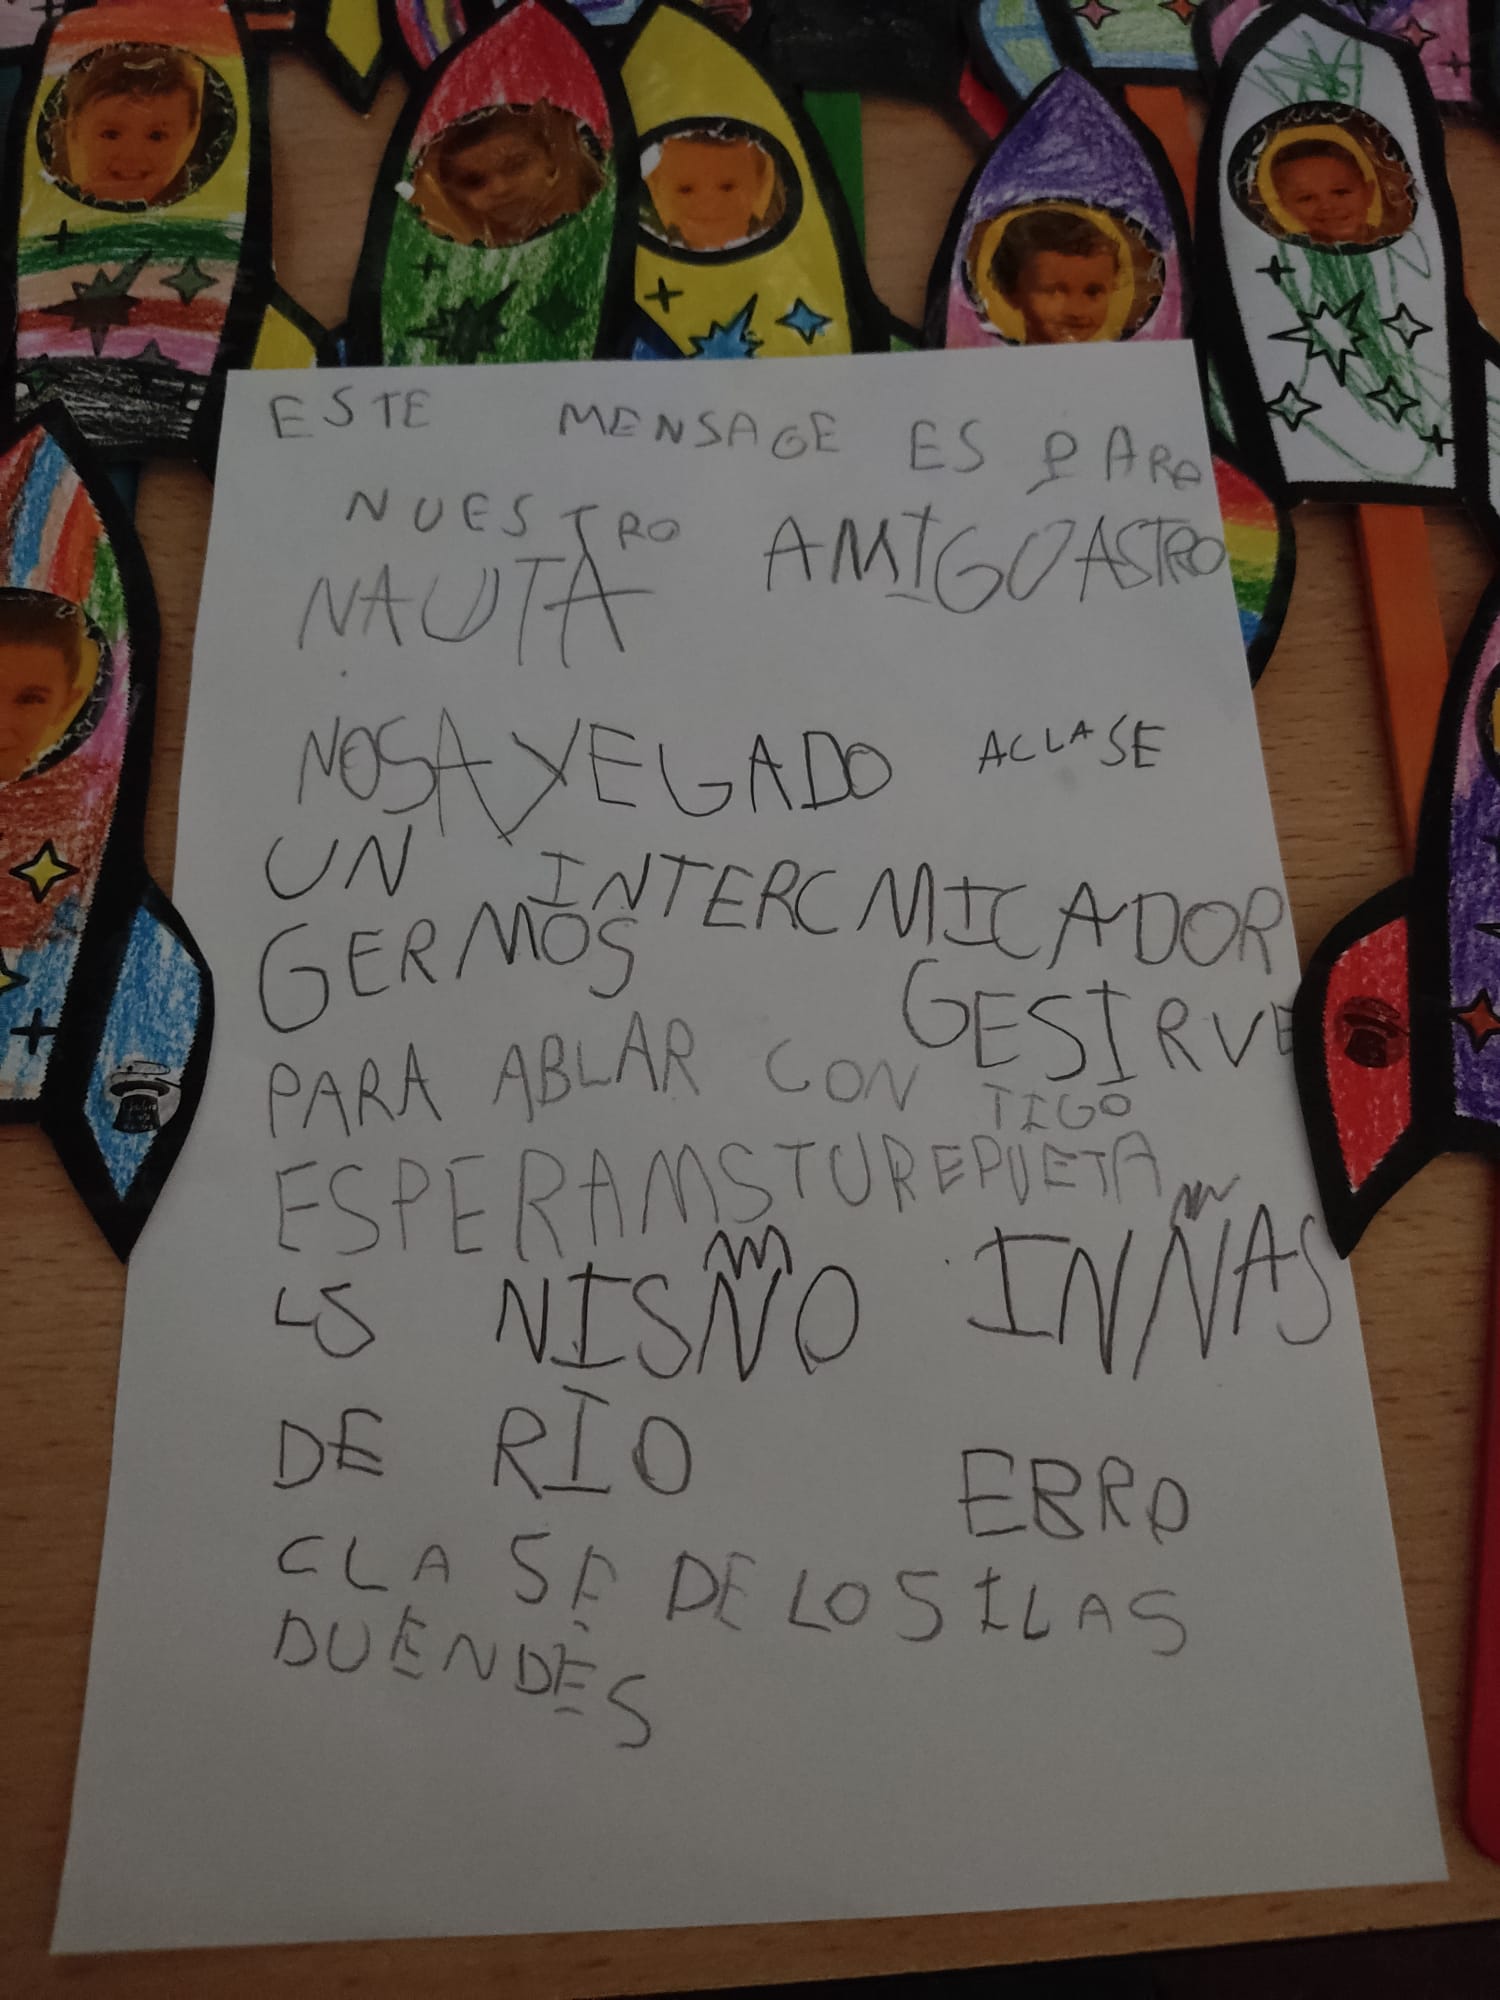 ESTE MENSAGE ES PARA
NUESTRO AMIGO ASTRO
NAUTA
NOSA YEGADO ACLASE
UN INTERCMICADOR
GERMOS GESIRVE
PARA ABLAR CON TIGO
ESPERAMS TU REPUETA
LS NISÑO INÑAS
DE RIO EBRO
CLASE DE LOS ILAS
DUENDES